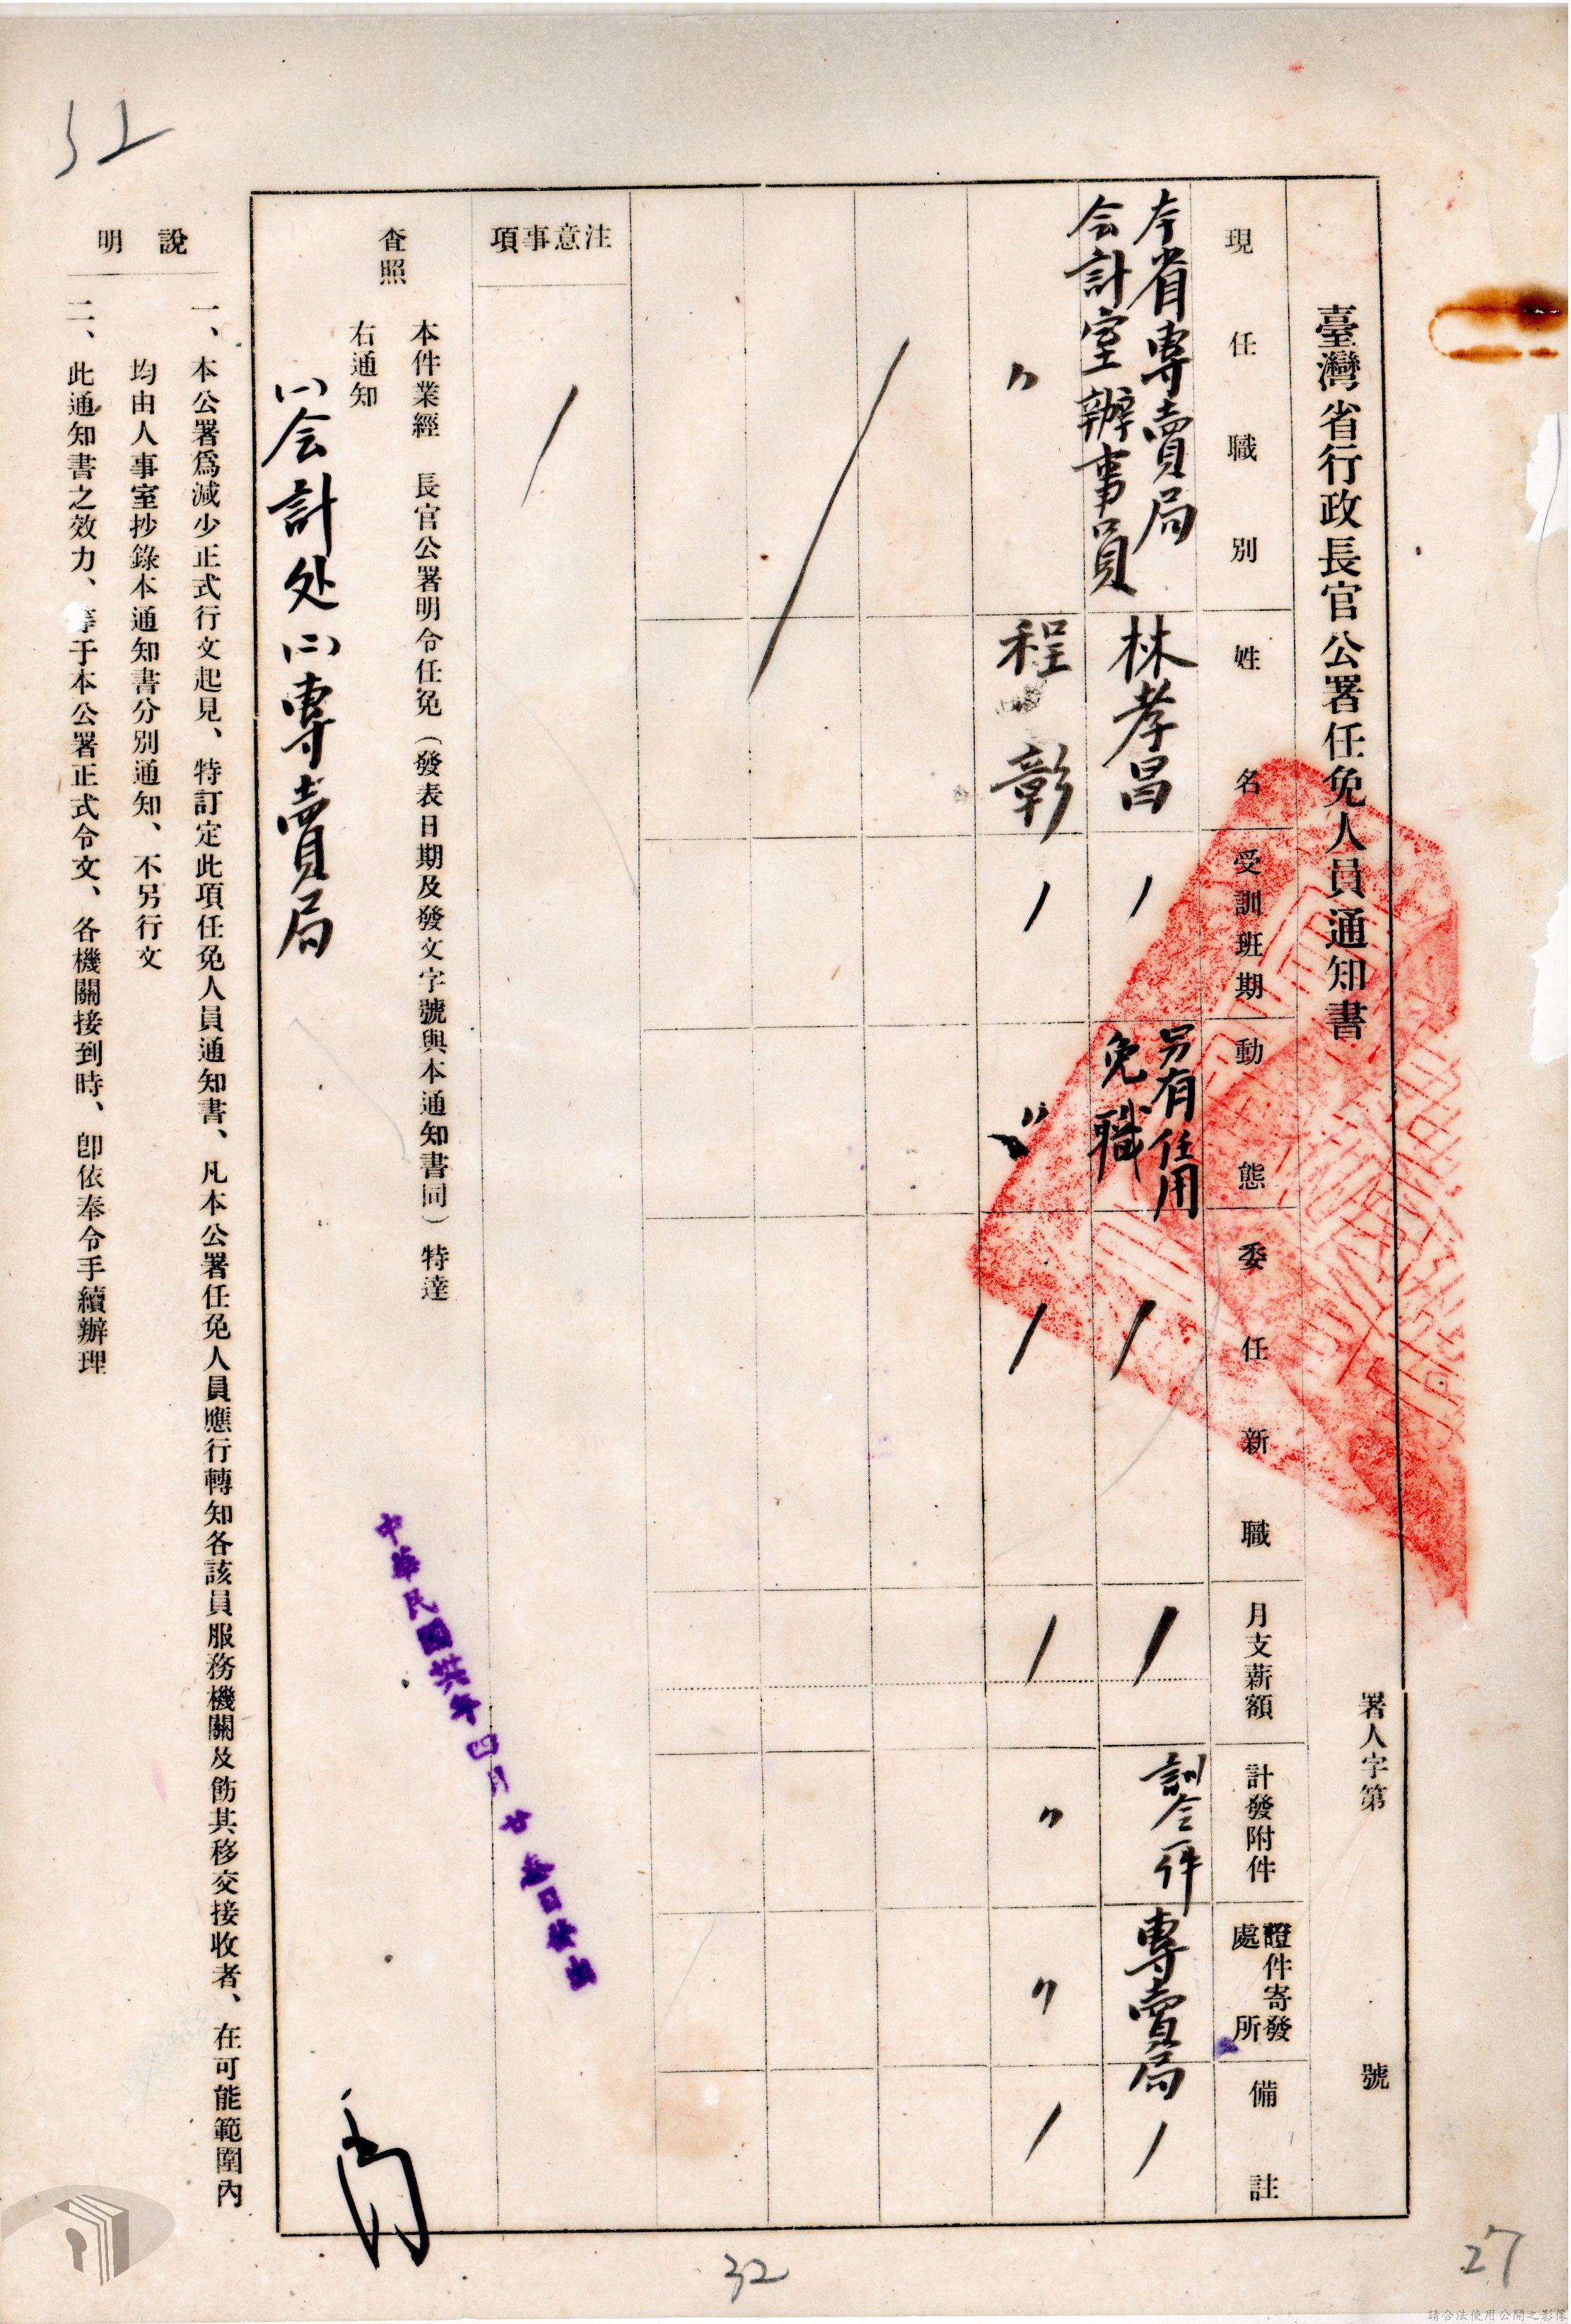 臺灣省行政長官公署任免人員通知書
署人字第　號
現任職別
姓名
受訓班期
動態
委任新職
月支薪額
計發附件
證件寄發處所
備註
本省專賣局
会計室辦事員
林孝昌
另有任用
免職
訓令一件
專賣局
〃
程彰
〃
〃
〃
注意事項
本件業經　長官公署明令任免（發表日期及發文字號與本通知書同）特達
查照
右通知
(一)会計处(二)專賣局
中華民國卅六年四月廿
日發出
說明
一、本公署爲減少正式行文起見、特訂定此項任免人員通知書、凡本公署任免人員應行轉知各該員服務機關及飭其移交接收者、在可能範圍內
均由人事室抄錄本通知書分別通知、不另行文
二、此通知書之效力、等于本公署正式令文、各機關接到時、卽依奉令手續辦理
32
32
27
請合法使用公開之影像